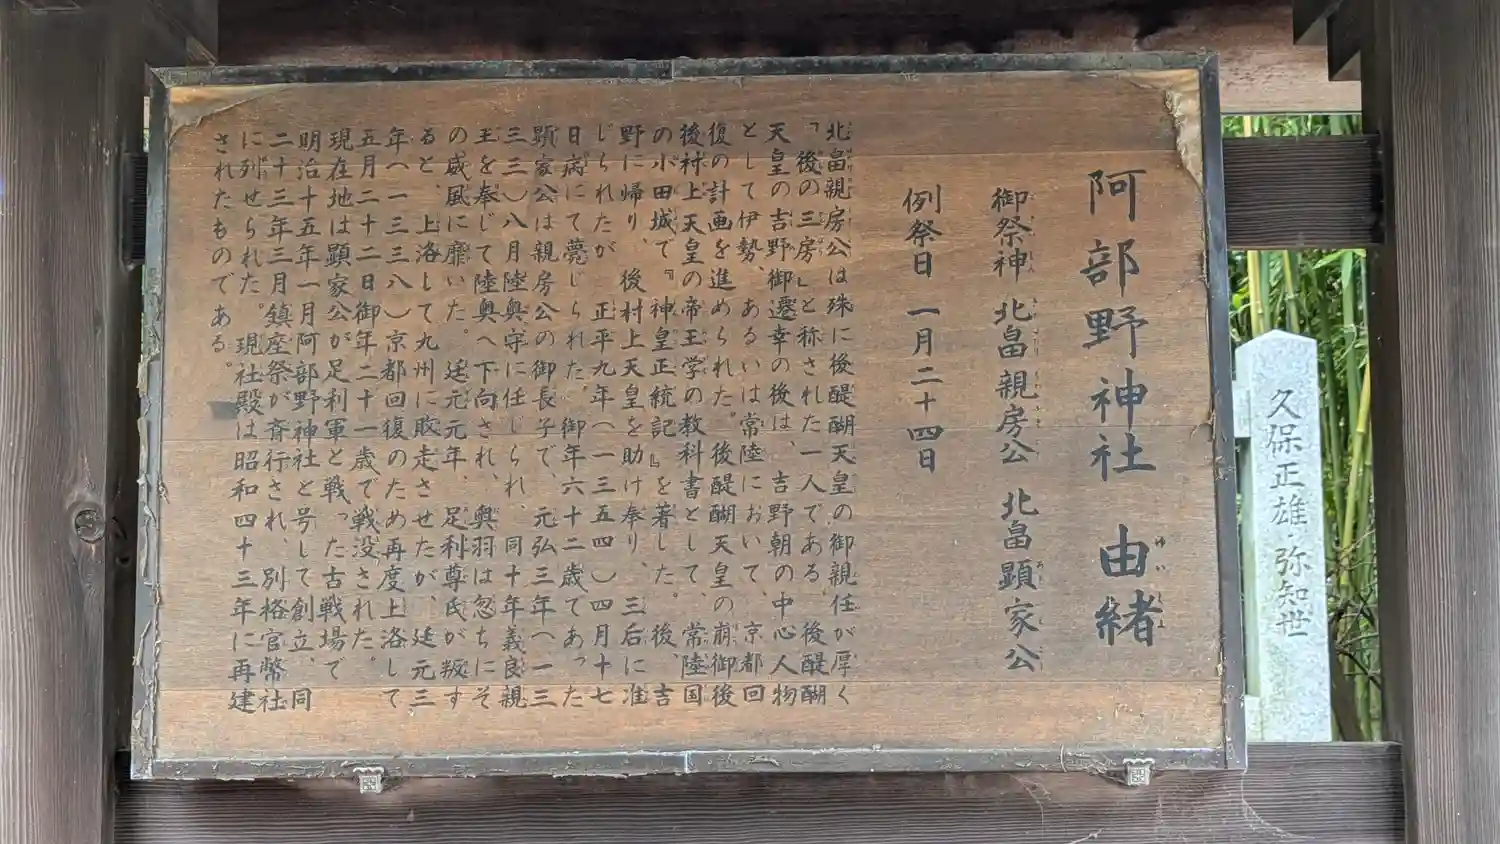 阿部野神社 由緒
御祭神 北畠親房公 北畠顕家公
例祭日 一月二十四日
北畠親房公は殊に後醍醐天皇の御親任が厚く
「後の三房」と称された一人である。後醍醐
天皇の吉野御遷幸の後は、吉野朝の中心人物
として伊勢、あるいは常陸において、京都回
復の計画を進められた。後醍醐天皇の崩御後
後村上天皇の帝王学の教科書として、常陸国
の小田城で『神皇正統記』を著した。後、吉
野に帰り、後村上天皇を助け奉り、三后に准
じられたが、正平九年(一三五四)四月十七
日病にて薨じられた。御年六十二歳であった
顕家公は親房公の御長子で、元弘三年(一三
三三)八月陸奥守に任じられ、同十年義良親
王を奉じて陸奥へ下向され、奥羽は忽ちにそ
の威風に靡いた。延元元年、足利尊氏が叛す
ると、上洛して九州に敗走させたが、延元三
年(一三三八)京都回復のため再度上洛して
五月二十二日御年二十一歳で戦没された。
現在地は顕家公が足利軍と戦った古戦場で
明治十五年一月阿部野神社と号して創立、同
二十三年三月鎮座祭が斉行され、別格官幣社
に列せられた。現社殿は昭和四十三年に再建
されたものである。
久保正雄・弥知世